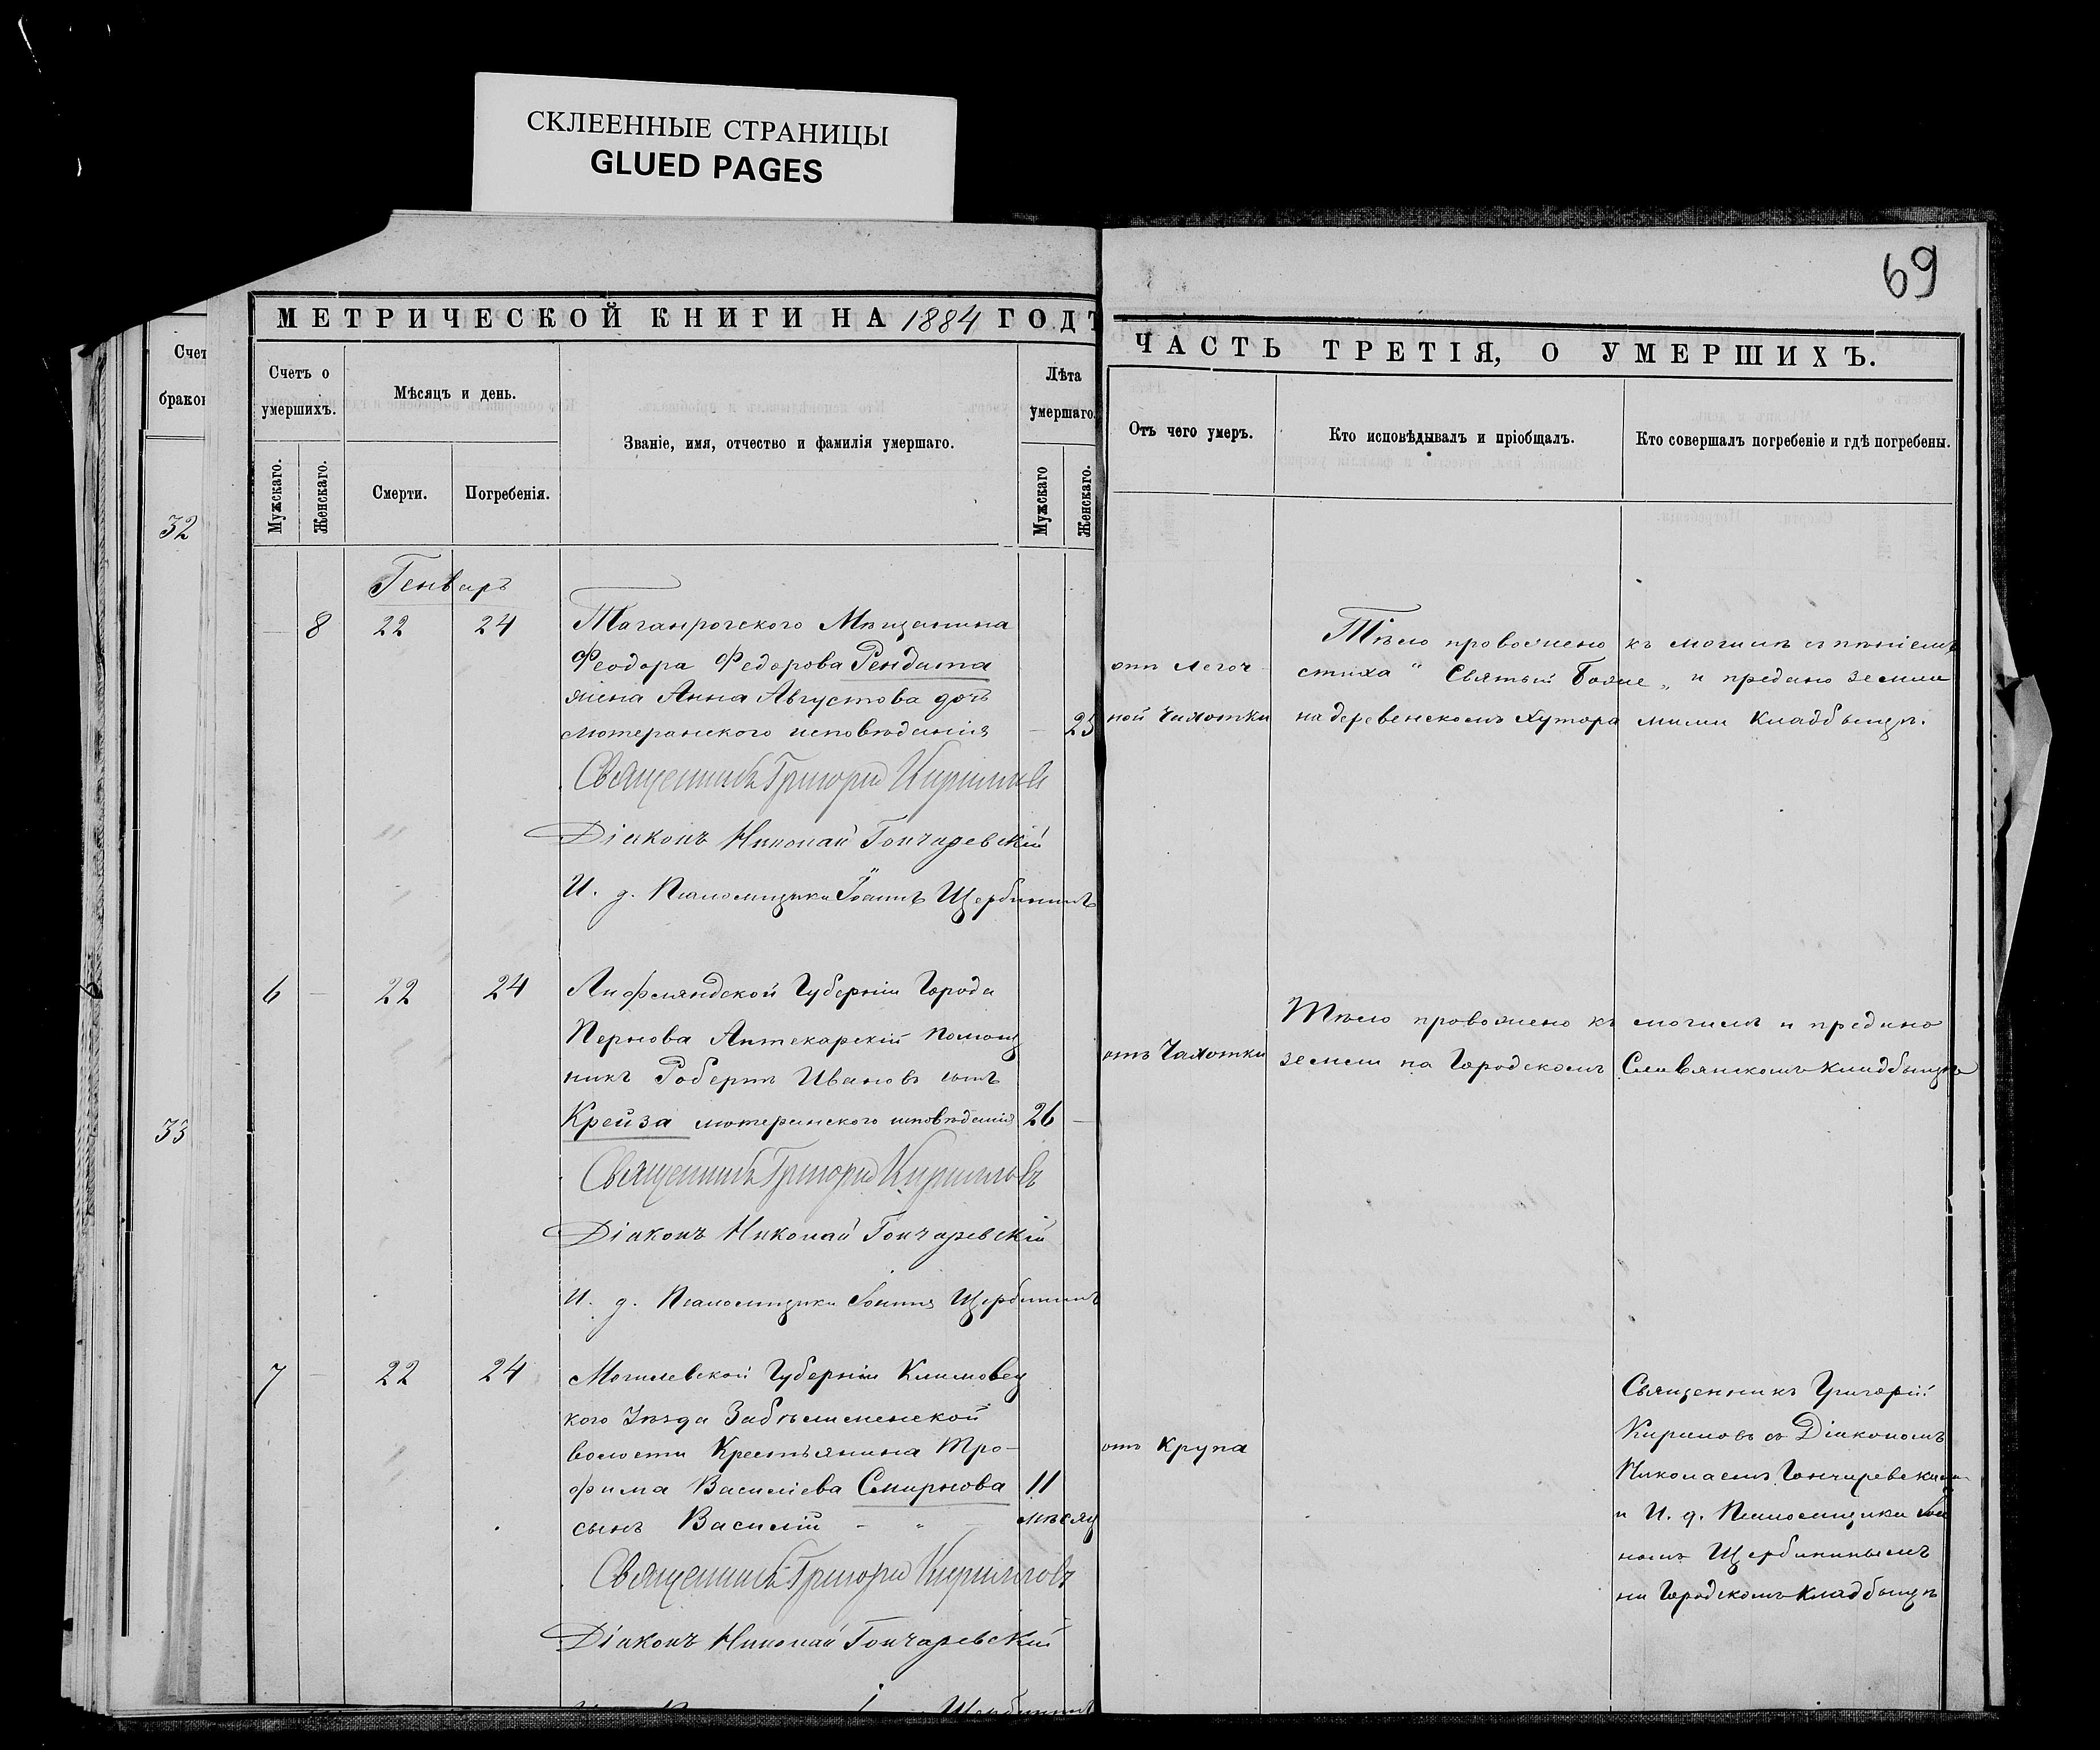 СКЛЕЕННЫЕ СТРАНИЦЫ
GLUED PAGES
69
Счет
браков
32
33
МЕТРИЧЕСКОЙ КНИГИ НА 1884 ГОДЪ
Счетъ о умершихъ.
Мужскаго.
Женскаго.
Мѣсяцъ и день.
Смерти.
Погребенія.
Званіе, имя, отчество и фамилія умершаго.
Лѣта умершаго.
Мужскаго
Женскаго.
Генварь
8 22 24 Таганрогского Мѣщанина
Феодора Федорова Рендата
жена Анна Августова дочь
лютеранского исповѣданія – 25
Священникъ Григорій Кириловъ
Діаконъ Николай Гончаревскій
И. д. Псаломщика Іоаннъ Щербининъ
6 – 22 24 Лифляндской Губерніи Города
Пернова Аптекарскій помощ
никъ Робертъ Ивановъ сынъ
Крейза лютеранского исповѣданія 26 –
Священникъ Григорій Кириловъ
Діаконъ Николай Гончаревскій
И. д. Псаломщика Іоаннъ Щербининъ
7 – 22 24 Могилевской Губерніи Климовец
кого Уѣзда
волости Крестьянина Тро-
фима Василіева Смирнова 11
сынъ Василій – „ – мѣсяц
Священникъ Григорій Кириловъ
Діаконъ Николай Гончаревскій
Щербининъ
ЧАСТЬ ТРЕТІЯ, О УМЕРШИХЪ.
Отъ чего умеръ.
Кто исповѣдывалъ и пріобщалъ.
Кто совершалъ погребеніе и гдѣ погребены.
отъ легоч
ной Чахотки
Тѣло провожено къ могилѣ съ пѣніемъ
стиха „ Святый Боже „ и предано земли
на деревенскомъ Хутора ми кладбыщѣ.
отъ Чахотки
Тѣло провожено къ могилѣ и предано
земли на Городскомъ Славянскомъ кладбыщѣ
отъ Крупа
Священникъ Григорій
Кириловъ съ Діакономъ
Николаемъ Гончаревским
и И. д. Псаломщика Іоан
номъ Щербининымъ
на Городскомъ кладбыщѣ